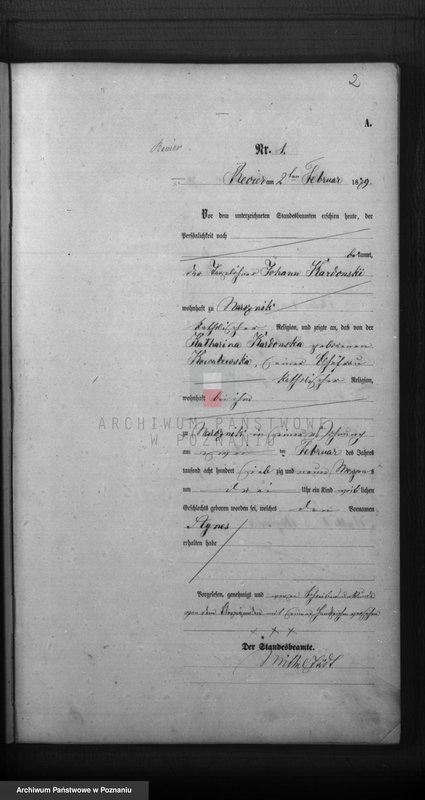 2
A.
Revier
Nr. 1.
Revier am 2ten Februar 1879.
Vor dem unterzeichneten Standesbeamten erschien heute, der
Persönlichkeit nach
bekannt,
der Tagelöhner Johann Kardonski
wohnhaft zu
katholischer Religion, und zeigte an, daß von der
Katharina Kardonska geborenen
Kowalewska, seiner Ehefrau
katholischer Religion,
wohnhaft bei ihm
ARCHIWUM PAŃSTWOWE
W POZNANIU
zu in seiner Wohnung
am zwei ten Februar des Jahres
tausend acht hundert sieb zig und neun Morgens
um drei Uhr ein Kind weiblichen
Geschlechts geboren worden sei, welches den Vornamen
Agnes
erhalten habe
Vorgelesen, genehmigt und wegen Schreibensunkunde
von dem mit seinem Handzeichen versehen
+ + +
Der Standesbeamte.
Archiwum Państwowe w Poznaniu